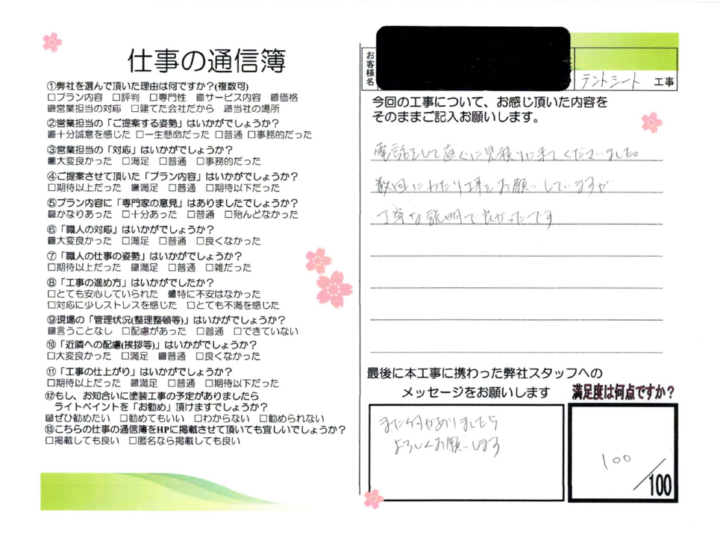 仕事の通信簿
①弊社を選んで頂いた理由は何ですか?(複数可)
□プラン内容 □評判 □専門性 ☑サービス内容 ☑価格
☑営業担当の対応 □建てた会社だから ☑当社の場所
②営業担当の「ご提案する姿勢」はいかがでしょうか?
☑十分誠意を感じた □一生懸命だった □普通 □事務的だった
③営業担当の「対応」はいかがでしょうか?
☑大変良かった □満足 □普通 □事務的だった
④ご提案させて頂いた「プラン内容」はいかがでしょうか?
□期待以上だった ☑満足 □普通 □期待以下だった
⑤プラン内容に「専門家の意見」はありましたでしょうか?
☑かなりあった □十分あった □普通 □殆んどなかった
⑥「職人の対応」はいかがでしょうか?
☑大変良かった □満足 □普通 □良くなかった
⑦「職人の仕事の姿勢」はいかがでしょうか?
□期待以上だった ☑満足 □普通 □雑だった
⑧「工事の進め方」はいかがでしたか?
□とても安心していられた ☑特に不安はなかった
□対応に少しストレスを感じた □とても不満を感じた
⑨現場の「管理状況(整理整頓等)」はいかがでしょうか?
☑言うことなし □配慮があった □普通 □できていない
⑩「近隣への配慮(挨拶等)」はいかがでしょうか?
□大変良かった □満足 ☑普通 □良くなかった
⑪「工事の仕上がり」はいかがでしょうか?
□期待以上だった ☑満足 □普通 □期待以下だった
⑫もし、お知合いに塗装工事の予定がありましたら
ライトペイントを「お勧め」頂けますでしょうか?
☑ぜひ勧めたい □勧めてもいい □わからない □勧められない
⑬こちらの仕事の通信簿をHPに掲載させて頂いても宜しいでしょうか?
□掲載しても良い □匿名なら掲載しても良い
お客様名
テントシート 工事
今回の工事について、お感じ頂いた内容を
そのままご記入お願いします。
電話をして直ぐに見積りに来てくださいました。
数回にわたり工事をお願いしていますが
丁寧な説明で良かったです
最後に本工事に携わった弊社スタッフへの
メッセージをお願いします
また何かありましたら
よろしくお願いします
満足度は何点ですか?
100
/100